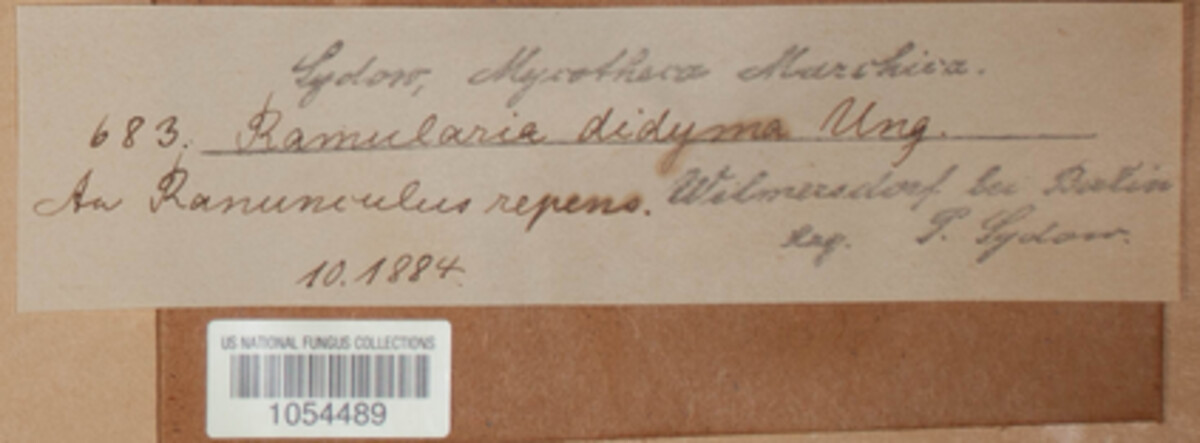 Sydow, Mycotheca Marchica.
683. Ramularia didyma Ung.
An Ranunculus repens. Wilmersdorf bei Berlin
leg. P. Sydow.
10.1884.
US NATIONAL FUNGUS COLLECTIONS
1054489